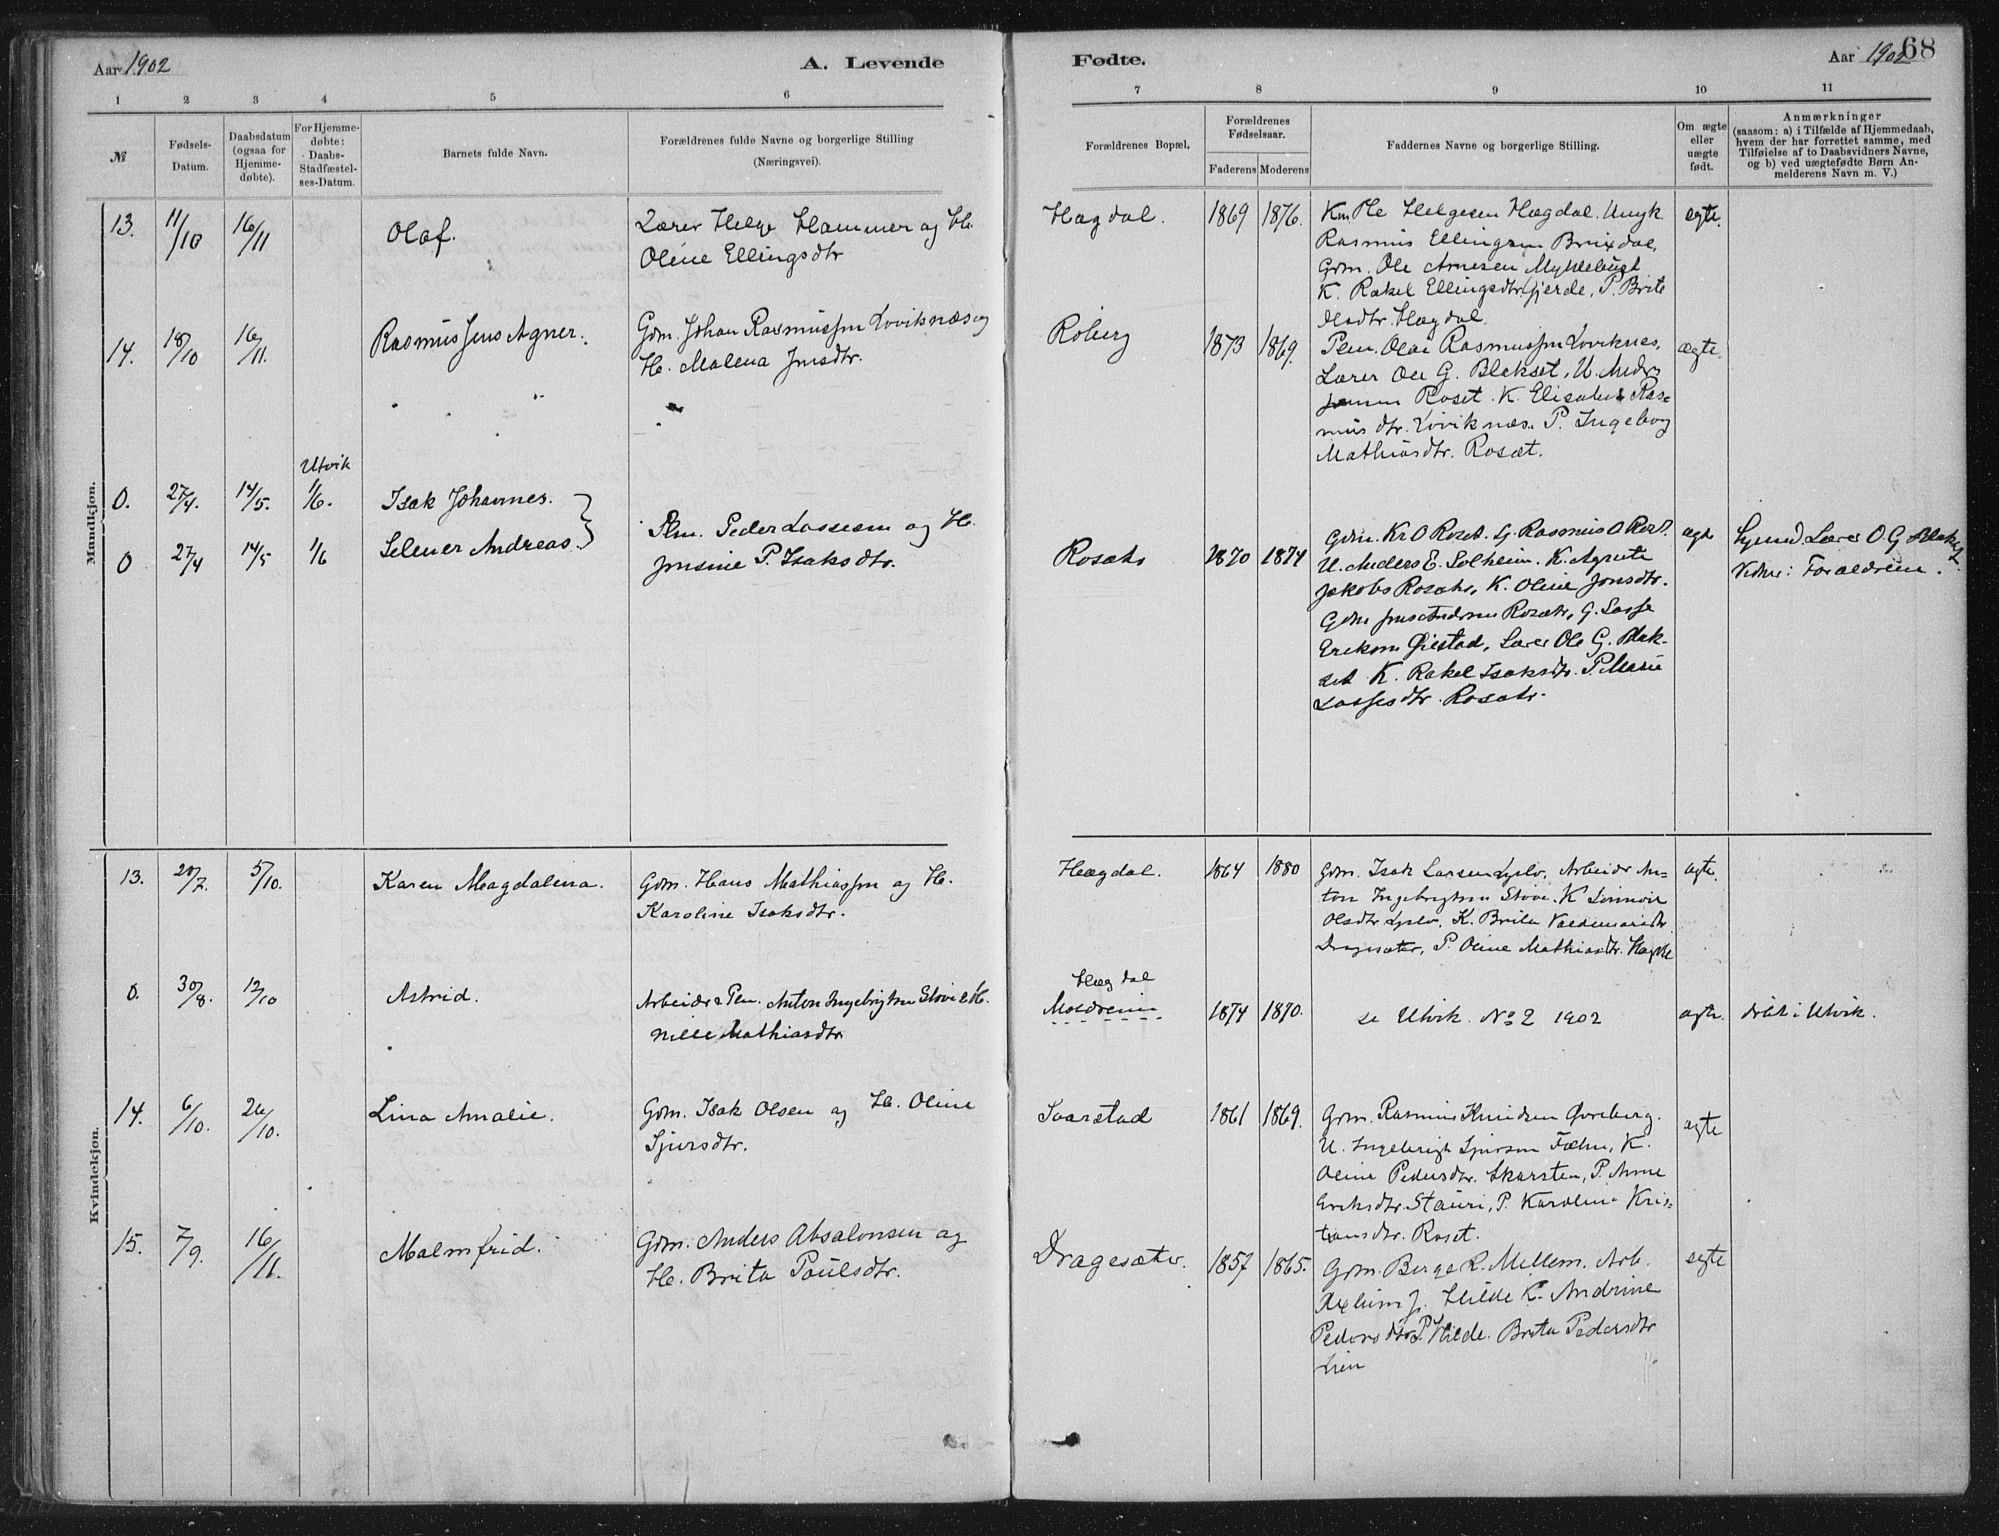 Aar 1902
A. Levende
Fødte.
Aar 1902
68
1 2 3 4 5 6 7 8 9 10 11
№
Fødsels-Datum.
Daabsdatum (ogsaa for Hjemme-døbte).
For Hjemme-døbte: Daabs-Stadfæstel-ses-Datum.
Barnets fulde Navn.
Forældrenes fulde Navne og borgerlige Stilling
(Næringsvei).
Forældrenes Bopæl.
Forældrenes Fødselsaar.
Faderens Moderens
Faddernes Navne og borgerlige Stilling.
Om ægte eller uægte født.
Anmærkninger
(saasom: a) i Tilfælde af Hjemmedaab,
hvem der har forrettet samme, med
Tilføielse af to Daabsvidners Navne,
og b) ved uægtefødte Børn An-
melderens Navn m. V.)
Mandkjøn.
13. 11/10 16/11 Olaf. Lærer Helge Hammer og H.
Oline Ellingsdtr
Hægdal. 1869 1876. Ole Helgesen Hægdal. Ungk.
Rasmus Ellingsen Brixdal,
Gdm. Ole Arnesen Myklebust
K. Rakel Ellingsdtr. Gjerde, P. Brite
Olsdtr. Hægdal.
ægte.
14. 18/10 16/11. Rasmus Jens Agner. Gdm. Johan Rasmussen Loviknæs og
H. Malena Jensdtr.
Roberg 1873 1869. Rasmussen Loviknes,
Lærer Ole G. Blakset, U.
Roset. K. Elisabet Ras-
musdtr. Loviknæs. P. Ingeborg
Mathiasdtr. Rosæt.
ægte.
Utvik
0. 27/4. 14/5. 1/6. Isak Johannes.
0 27/4 14/5 1/6 Selmer Andreas.
Plm. Peder Lassesen og H.
Jensine P. Isaksdtr.
Rosæts 1870 1874
Gdm. Kr O Roset. G. Rasmus O Roset.
U. Anders E. Solheim. K. Agnete
Jakobs Rosæts, K. Oline Jonsdtr.
Gdm Rosæts, G. Lasse
Eriksen Øiestad, Lærer Ole G. Blak-
set K. Rakel Isaksdtr. P. Marie
Lassesdtr. Rosæts.
ægte
Lærer O G Blakset
Vidner: Forældrene.
Kvindekjøn.
13. 20/7. 5/10. Karen Magdalena. Gdm. Hans Mathiassen og H.
Karoline Isaksdtr.
Hægdal. 1864 1880
Gdm. Isak Larsen Lyslo, Arbeider An-
ton Ingebrigtsen Støve. K
Olsdtr Lyslo, K. Brita Valdemarsdtr.
Dragesæter, P. Oline Mathiasdtr.
ægte.
0. 30/8. 12/10 Astrid. Arbeider Plm. Anton Ingebrigtsen Støve & H.
Nille Mathiasdtr
Hægdal
Moldreim 1874 1870.
se Utvik No 2 1902
ægte. døbt i Utvik.
14. 6/10. 26/10. Lina Amalie. Gdm. Isak Olsen og H. Oline
Sjursdtr.
Taarstad 1861 1869.
Gdm. Rasmus Knudsen Øvreberg.
U. Ingebrigt Sjursen Fæhn, K.
Oline Pedersdtr. Skarsten, P. Anne
Eriksdtr. Stauri, P. Karoline Kris-
tensdtr. Roset.
ægte
15. 7/9. 16/11. Malmfrid. Gdm. Anders Absalonsen og
H. Brita Paulsdtr.
Dragesæter. 1857 1865.
Gdm. Berge R. Mellem. Arb.
Hilde K. Andrine
Pedersdtr. Hilde. Brita Pedersdtr
Lien
ægte